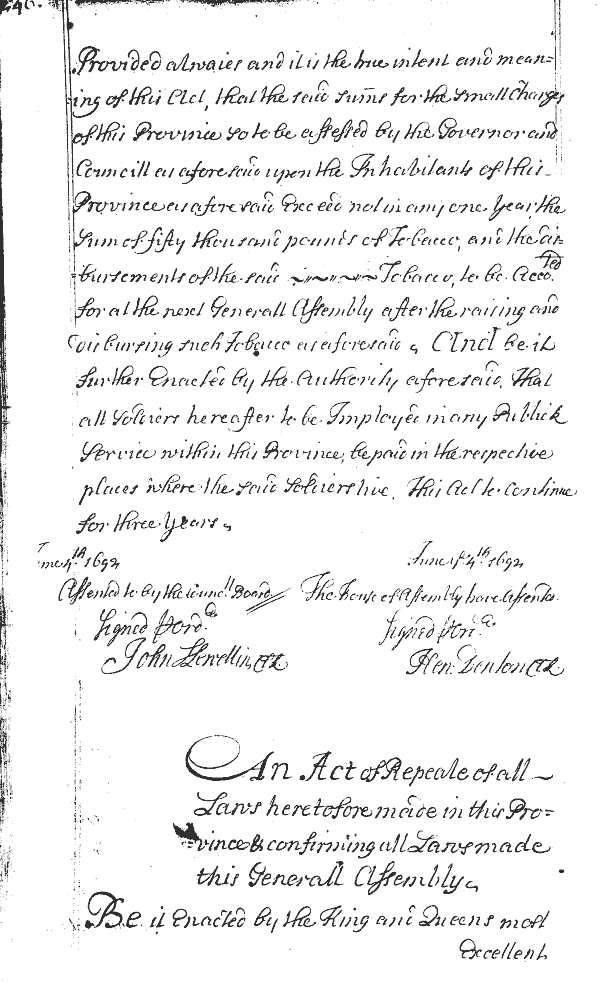 Provided alwaies and it is the true intent and mean=
ing of this Act, that the said sum̃s for the small Charges
of this Province so to be assessed by the Governor and
Councill as aforesaid upon the Inhabitants of this
Province as aforesaid Exceed not in any one Year, the
Sum of fifty thousand pounds of Tobacco, and the dis=
bursements of the said Tobacco, to be Acco:ted
for at the next Generall Assembly after the raising and
disbursing such Tobacco as aforesaid, And be it
further Enacted by the Authority aforesaid, That
all Soldiers hereafter to be Imployed in any Publick
Service within this Province, be paid in the respective
places where the said Soldiers live, This Act to Continue
for three Years,
June 4th 1692 June ye 4th 1692
Assented to by the Councll Board The house of Assembly have Assented.
Signed pord. Signed pord.
John Llewellin, Clk Hen: Denton Clk
An Act of Repeale of all
Laws heretofore made in this Pro=
vince & confirming all Laws made
this Generall Assembly,
Be it Enacted by the King and Queens most
Excellent